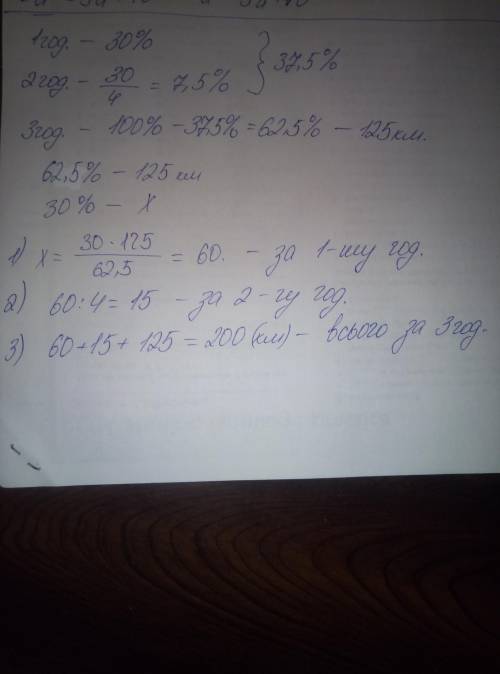 1год. – 30%
2год. – 30/4 = 7,5% } 37,5%
3год. – 100% – 37,5% = 62,5% – 125 км.
62,5% – 125 км
30% – x
1) x = 30·125/62,5 = 60. – за 1-шу год.
2) 60:4 = 15 – за 2-гу год.
3) 60+15+125 = 200 (км) – всього за 3год.